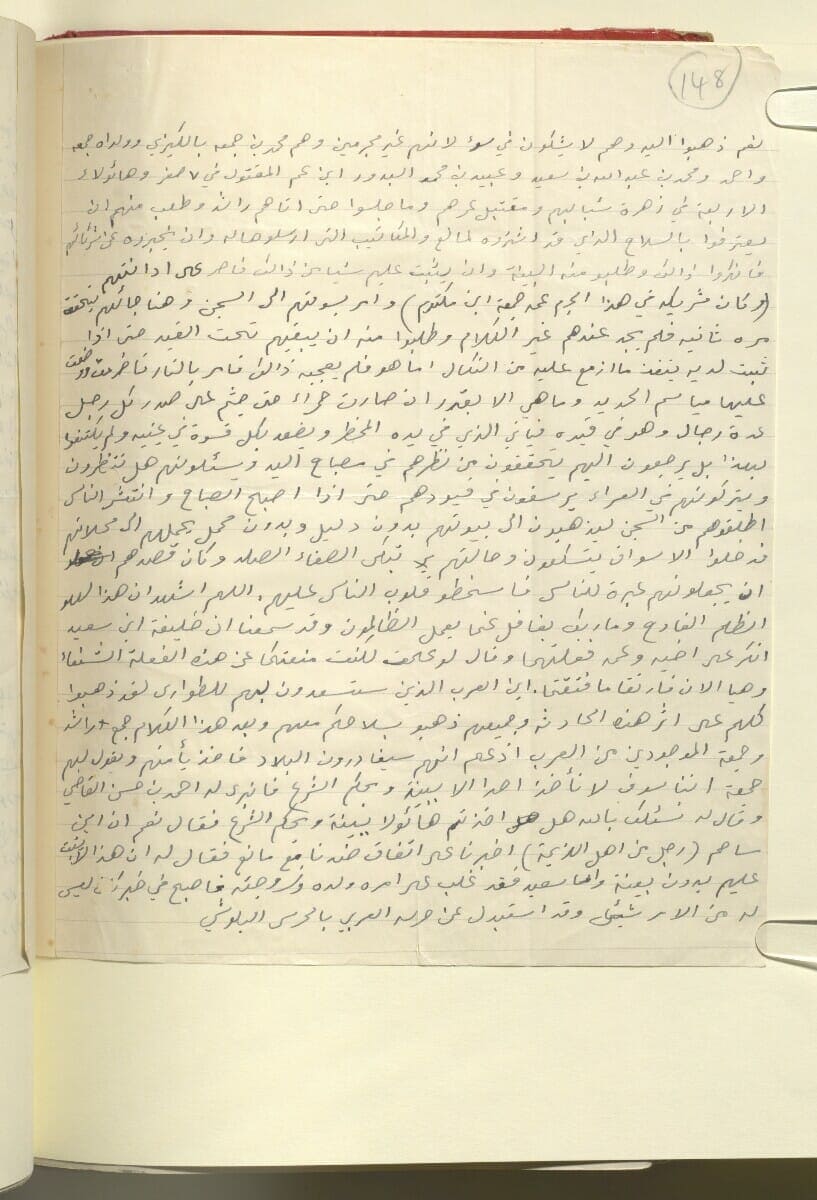 148
نعم ذهبوا اليه وهم لا يشكون في سوء لانهم غير مجرمين وهم محمد بن جمعه بالكيزي وولداه جمعه
واحمد ومحمد بن عبدالله بن سعيد وعبيد بن محمد البدور ابن عم المقتول في ٧ صفر وهائولاء
الاربعة في زهرة شبابهم ومقتبل عمرهم وما جلسوا حتى اتاهم راشد وطلب منهم ان
يعترفوا بالسلاح الذي قد اشتروه لمانع والمكاتيب التي ارسلوها له وان يخبروه عن شركائهم
فانكروا ذالك وطلبو منه البينة وان يثبت عليهم شيئا من ذالك فاصر على ادانتهم
(وكان شريكه في هذا الجرم عمه جمعة ابن مكتوم) وامر بسوقهم الى السجن وهنا جائهم ليحقق
مره ثانيه فلم يجد عندهم غير الكلام وطلبوا منه ان يبقيهم تحت القيد حتى اذا
ثبت لديه ينفذ ما ازمع عليه من النكال اما هو فلم يعجبه ذالك فامر بالنار فاضرمت ووضعت
عليها مياسم الحديد وما هي الا بقدر ان صارت حمراء حتى جثم على صدر كل رجل
عدة رجال وهو في قيده فيأتي الذي في يده المخط ويضعه بكل قسوة في عينيه ولم يكتفوا
بهذا بل يرجعون اليهم يتحققون من نظرهم في مصباح اليد ويسئلونهم هل تنظرون
ويتركونهم في العراء يرسفون في قيودهم حتى اذا اصبح الصباح وانتشر الناس
اطلقوهم من السجن ليذهبون الى بيوتهم بدون دليل وبدون محمل يحملهم الى محلاتهم
فدخلوا الاسواق يتسكعون وحالتهم تبكى الصفاء الصلد وكان قصدهم
ان يجعلونهم عبرة للناس فاسخطو قلوب الناس عليهم. اللهم اشهد ان هذا لهو
الظلم الفادح وما ربك بغافل عما يعمل الظالمون وقد سمعنا ان خليفة ابن سعيد
انكر على اخيه وعمه فعلتهما وقال لو علمت لكنت منعتكما عن هذه الفعلة الشنعاء
وهيا الان فارتقا ما فتقتما. اين العرب الذين ستسعدون بهم للطوارى لقد ذهبوا
كلهم على اثر هذه الحادثه وجميعهم ذهبو بسلاحكم معهم وبعد هذا الكلام جمع راشد
وجمعة الموجودين من العرب اذ علم انهم سيغادرون البلاد فاخذ يأمنهم ويقول لهم
جمعة اننا سوف لا نأخذ احدا الا ببينة وبحكم الشرع فانبرى له احمد بن حسن القاضي
وقال له نسئلك بالله هل اخذتم هائولا ببينة وبحكم الشرع فقال نعم ان ابن
ساهم (رجل من اهل الذيمة) اخبرنا على اتفاق ضدنا مع مانع فقال له ان هذا لا يثبت
عليهم بدون بينة واما سعيد فقد غلب على امره ولده وزوجته فاصبح في خبر كان ليس
له من الامر شيئ وقد استبدل عن حرسه العربي بالحرس البلوشي